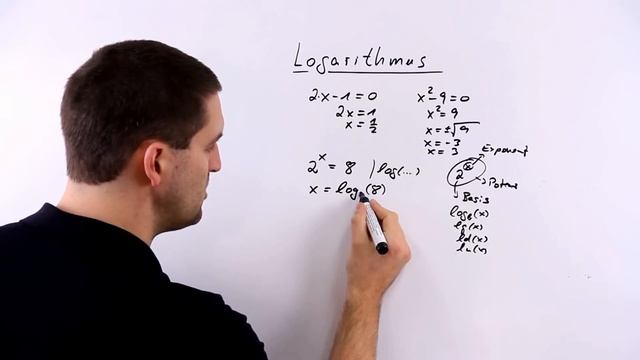 Logarithmus
2·x-1=0
2x=1
x=1/2
x²-9=0
x²=9
x=±√9
x=-3
x=3
2ˣ = 8 | log(...)
x = log (8)
Exponent
2ˣ
Potenz
Basis
log_b(x)
lg(x)
ld(x)
ln(x)